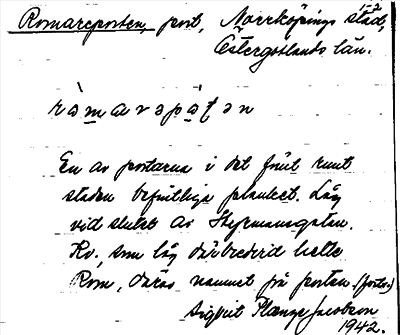 1-2
Romareporten, port, Norrköpings stad,
Östergötlands län.
ròmarepatən
En av portarna i det förut runt
staden befintliga planket. Låg
vid slutet av Styrmansgatan.
Kv., som låg därbredvid hette
Rom, därav namnet på porten. (forts.)
Sigbrit Plænge Jacobson
1942.